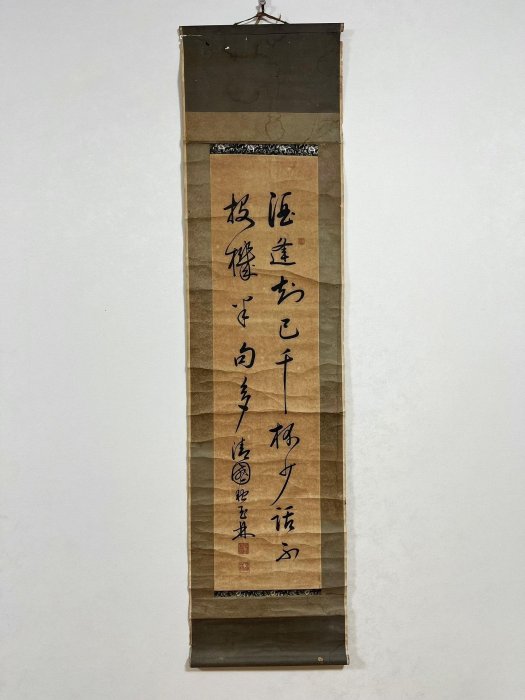 酒逢知己千杯少話不
投機半句多 清國 玉林